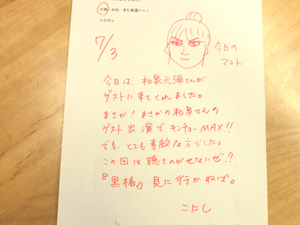 7/3
今日の
マント
今日は、和泉元彌さんが
ゲストに来てくれました。
まさか！まさかの和泉さんの
ゲスト出演でキンチョーMAX!!
でも、とても素敵な方でした。
この回は聴きのがせないぜ!!
『黒椿』見に行かねば。
こにし